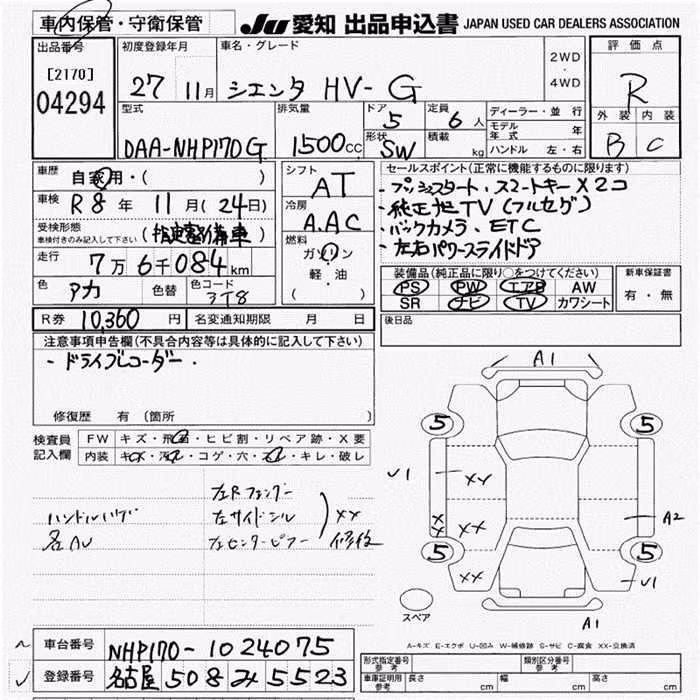 車内保管・守衛保管
JU 愛知 出品申込書 JAPAN USED CAR DEALERS ASSOCIATION
出品番号
[2170]
04294
初度登録年月
27 11月
車名・グレード
シエンタ HV-G
2WD
・
4WD
評価点
R
外装 内装
B C
型式
DAA-NHP170G
排気量
1500cc
ドア
5
形状
SW
定員
6人
積載
kg
ディーラー・並行
モデル年式 年
ハンドル 左・右
車歴
自家用・( )
車検
R8年 11月(24日)
受検形態
車検付きのみ記入して下さい
(指定整備車)
走行
7万6千084km
色
アカ
色替
色コード
3T8
シフト
AT
冷房
A.AC
燃料
ガソリン
軽・油
( )
セールスポイント(正常に機能するものに限ります)
・プッシュスタート、スマートキー×2コ
・純正ナビTV(フルセグ)
・バックカメラ、ETC
・左右パワースライドドア
装備品(純正品に限り○をつけてください)
PS PW エアB AW
SR ナビ TV カワシート
新車保証書
有・無
R券 10,360円
名変通知期限 月 日
後日品
注意事項申告欄(不具合内容等は具体的に記入して下さい)
・ドライブレコーダー.
修復歴 有(箇所
検査員
記入欄
FW キズ・飛石・ヒビ割・リペア跡・X要
内装 キズ・汚れ・コゲ・穴・スレ・キレ・破レ
左Rフェンダー
ハンドルハゲ 左サイドシル XX
各AU 左センターピラー 修復
A1
5 5
√1 XX
XX XX A2
5 5
XX √1
スペア
A1
A-キズ E-エクボ U-凹み W-補修跡 S-サビ C-腐食 XX-交換済
車台番号 NHP170-1024075
登録番号 名古屋 508 み 5523
形式指定番号 参考
類別区分番号 参考
車庫証明用 参考
長さ cm 幅 cm 高さ cm